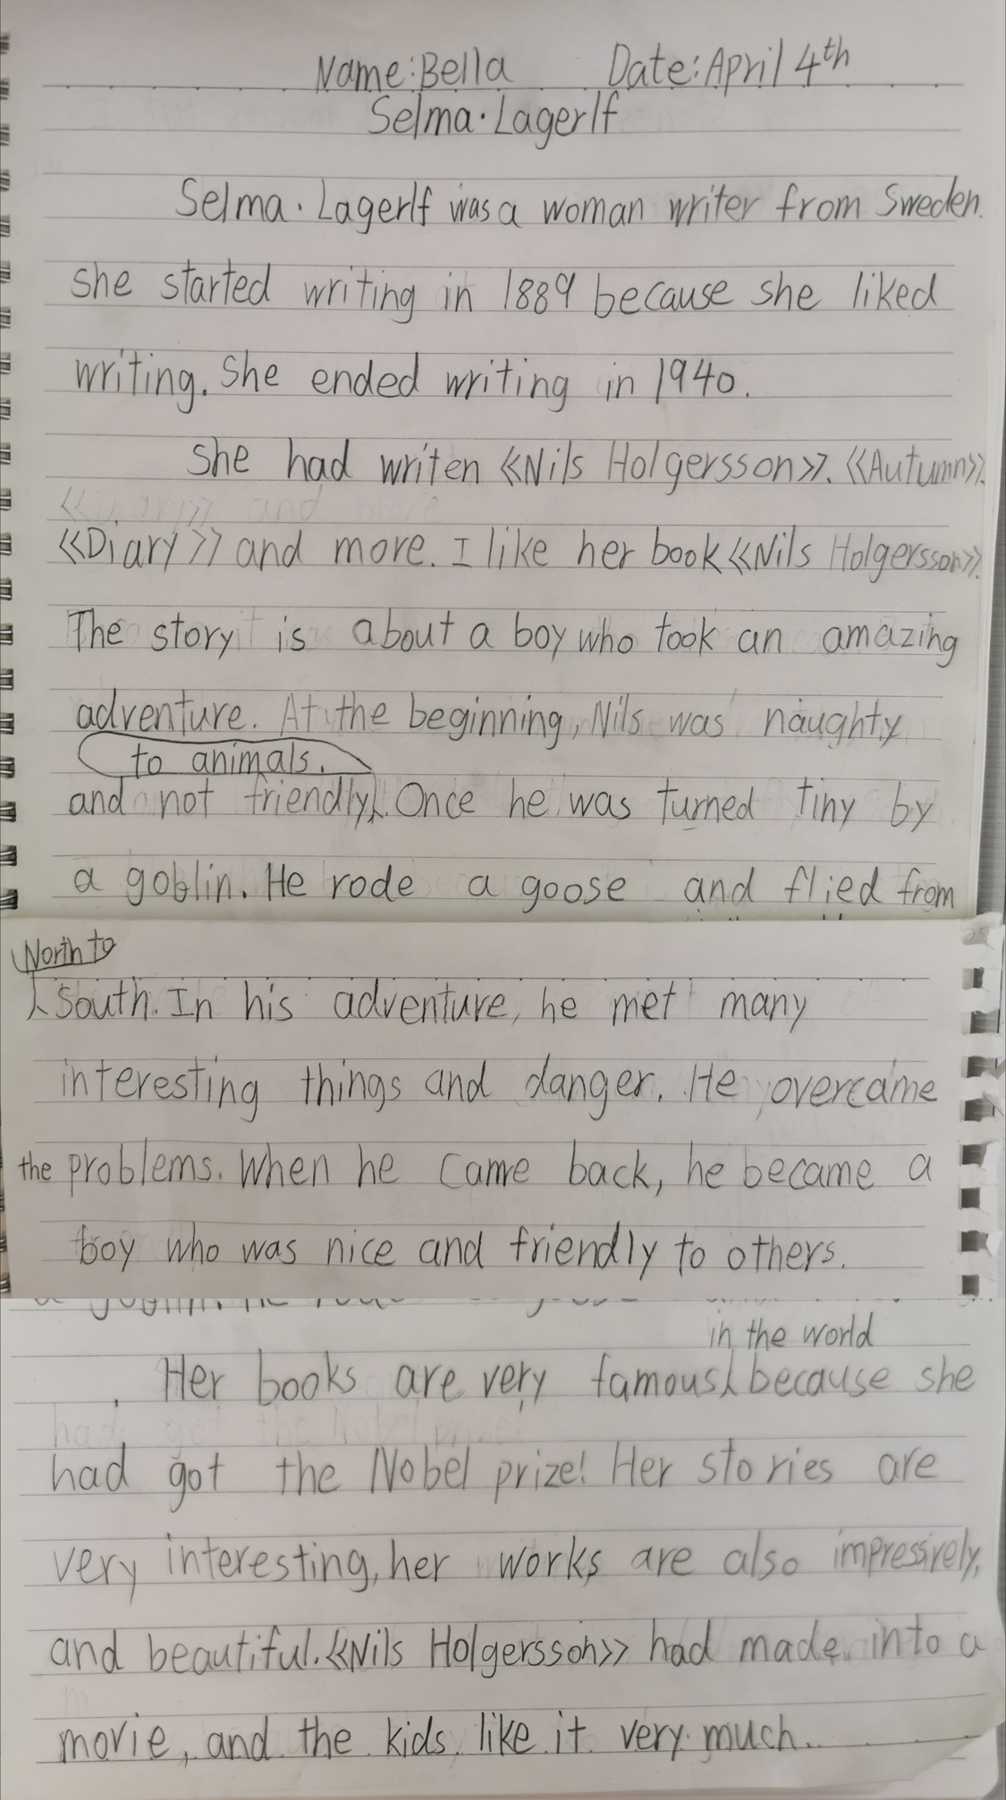 Name: Bella Date: April 4th
Selma·Lagerlf
Selma·Lagerlf was a woman writer from Sweden.
She started writing in 1889 because she liked
writing. She ended writing in 1940.
She had writen 《Nils Holgersson》. 《Autumn》.
《Diary》 and more. I like her book 《Nils Holgersson》.
The story is about a boy who took an amazing
adventure. At the beginning, Nils was naughty
to animals.
and not friendly. Once he was turned tiny by
a goblin. He rode a goose and flied from
North to
South. In his adventure, he met many
interesting things and danger. He overcame
the problems. When he came back, he became a
boy who was nice and friendly to others.
in the world
Her books are very famous because she
had got the Nobel prize! Her stories are
very interesting, her works are also impressively,
and beautiful. 《Nils Holgersson》 had made into a
movie, and the kids like it very much.